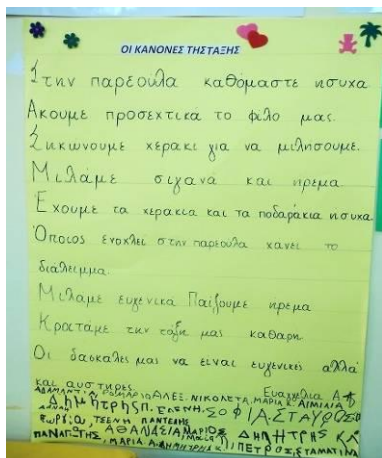 ΟΙ ΚΑΝΟΝΕΣ ΤΗΣ ΤΑΞΗΣ
Στην παρεουλα καθόμαστε ησυχα
Ακουμε προσεχτικά το φιλο μας.
Σηκώνουμε χερακι για να μιλησουμε.
Μιλάμε σιγανά και ηρεμα
Εχουμε τα χερακια και τα ποδαράκια ησυχα
Όποιος ενοχλεί στην παρεουλα χανει το
διάλειμμα.
Μιλαμε ευγενικα Παίζουμε ηρεμα
Κρατάμε την τάξη μας καθαρη
Οι δασκαλες μας να ειναι ευγενικές αλλά
και αυστηρες.
Ευαγγελια Α
ΜΑΡΙΟ ΑΛΕΞ. ΝΙΚΟΛΕΤΑ. ΜΑΡΙΑ Κ. ΑΙΜΙΛΙΑ
ΔΗΜΗΤΡΗΣ Π. ΕΛΕΝΗ. ΣΟΦΙΑ. ΣΤΑΥΡΟΣ
ΤΖΕΝΗ ΠΑΝΤΕΛΗΣ
ΑΘΑΝΑΣΙΑ ΜΑΡΙΟΣ ΔΗΜΗΤΡΗΣ Κ
ΠΑΝΑΓΙΩΤΗΣ, ΜΑΡΙΑ Α. ΠΕΤΡΟΣ, ΣΤΑΜΑΤΙΝΑ